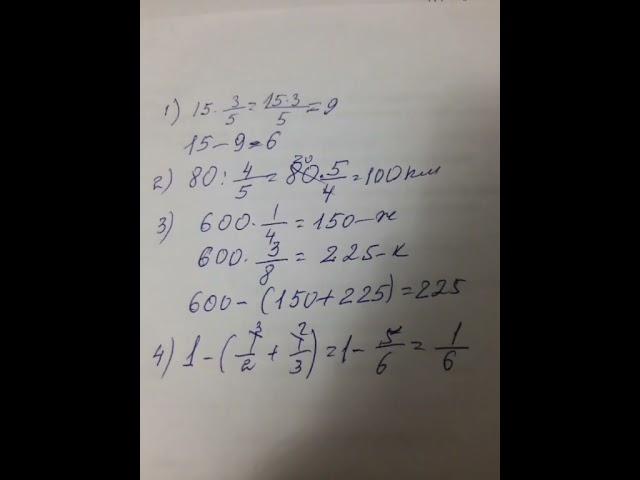 1) 15 · 3/5 = 15·3/5 = 9
15 − 9 = 6
2) 80 : 4/5 = 80·5/4 = 100 км
20
3) 600 · 1/4 = 150 − ж
600 · 3/8 = 225 − к
600 − (150 + 225) = 225
3 2
4) 1 − (1/2 + 1/3) = 1 − 5/6 = 1/6